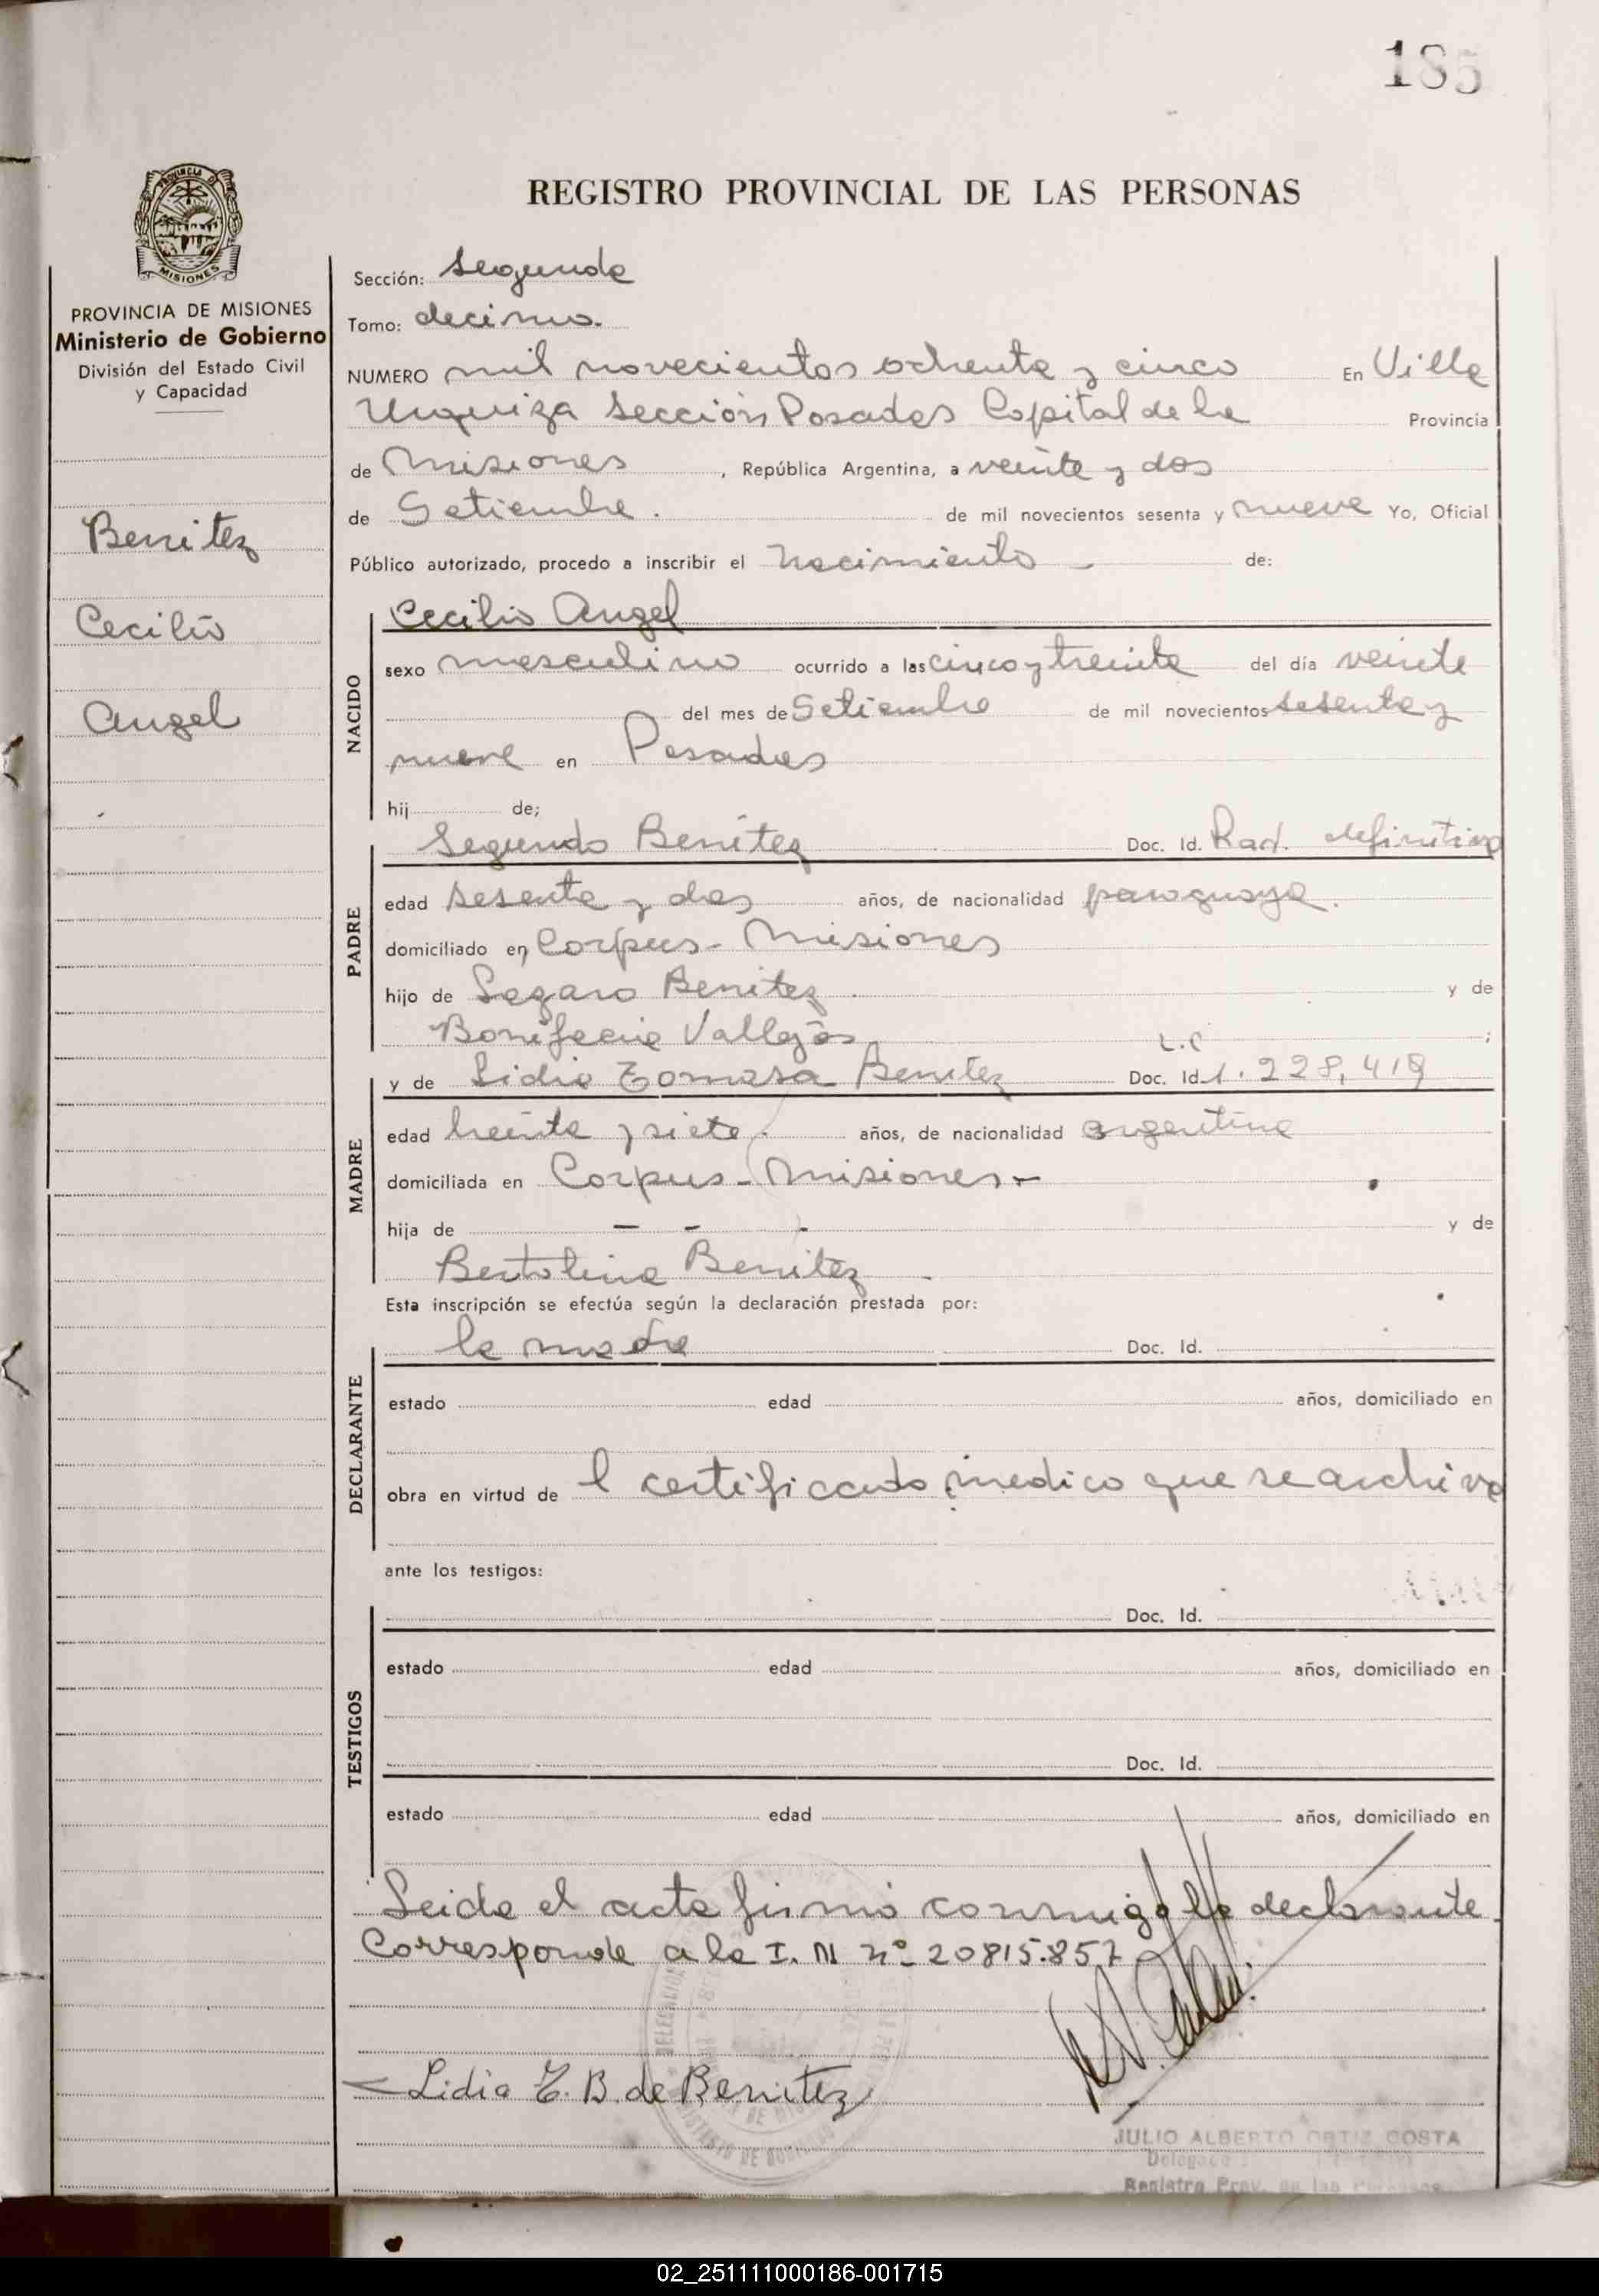 185
PROVINCIA DE MISIONES
Ministerio de Gobierno
División del Estado Civil
y Capacidad
Benitez
Cecilio
Angel
REGISTRO PROVINCIAL DE LAS PERSONAS
Sección: Segunda
Tomo: decimo.
NUMERO mil novecientos ochenta y cinco En Villa
Urquiza Sección Posadas Capital de la Provincia
de Misiones, República Argentina, a veinte y dos
de Setiembre. de mil novecientos sesenta y nueve Yo, Oficial
Público autorizado, procedo a inscribir el Nacimiento de:
Cecilio Angel
NACIDO
sexo masculino ocurrido a las cinco y treinta del día veinte
del mes de Setiembre de mil novecientos sesenta y
nueve en Posadas
hij de;
Segundo Benitez Doc. Id. Rad. definitiva
PADRE
edad sesenta y dos años, de nacionalidad paraguaya.
domiciliado en Corpus - Misiones
hijo de Lazaro Benitez y de
Bonifacia Vallejos ;
y de Lidia Tomasa Benitez Doc. Id. L.C 1.228,419
MADRE
edad treinta y siete. años, de nacionalidad argentina
domiciliada en Corpus - Misiones -
hija de - - - y de
Bertolina Benitez
Esta inscripción se efectúa según la declaración prestada por:
la madre Doc. Id.
DECLARANTE
estado edad años, domiciliado en
obra en virtud de l certificado medico que se archiva
ante los testigos:
Doc. Id.
TESTIGOS
estado edad años, domiciliado en
Doc. Id.
estado edad años, domiciliado en
Leida el acta firmó conmigo la declarante.
Corresponde a la I. N nº 20815.857
Lidia T. B. de Benitez
JULIO ALBERTO ORTIZ COSTA
Registro Prov. de las Personas
02_251111000186-001715